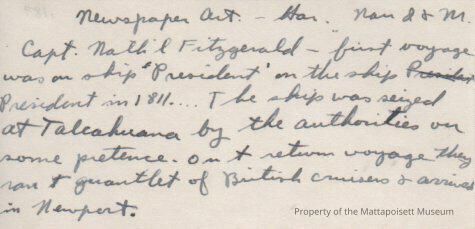 Newspaper Art. - Har. Nan & M
Capt. Nath'l Fitzgerald - first voyage
was on ship 'President' on the ship
President in 1811.... The ship was seized
at Talcahuana by the authorities on
some pretence. On t return voyage they
ran t guantlet of British cruisers & arrived
in Newport.
Property of the Mattapoisett Museum